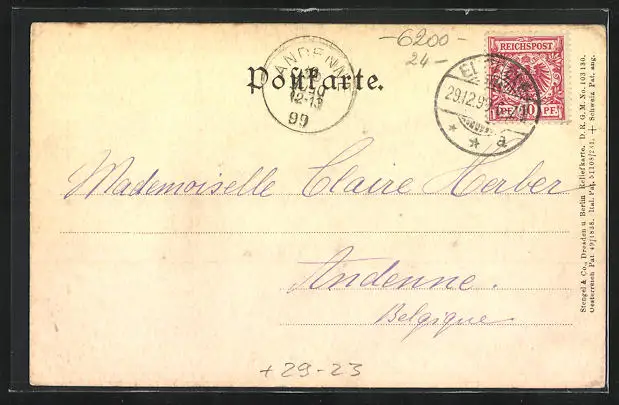 -6200-
24-
REICHSPOST
ANDENNE
Postkarte.
29.12.9
12-13
10
PF
99
a
Mademoiselle Claire Herber
Andenne.
Belgique
+29-23
Stengel & Co., Dresden u. Berlin Reliefkarte. D. R. G. M. No. 103 130.
Oesterreich Pat. 49/1838. Ital. Pat. 51108/231. + Schweiz Pat. ang.